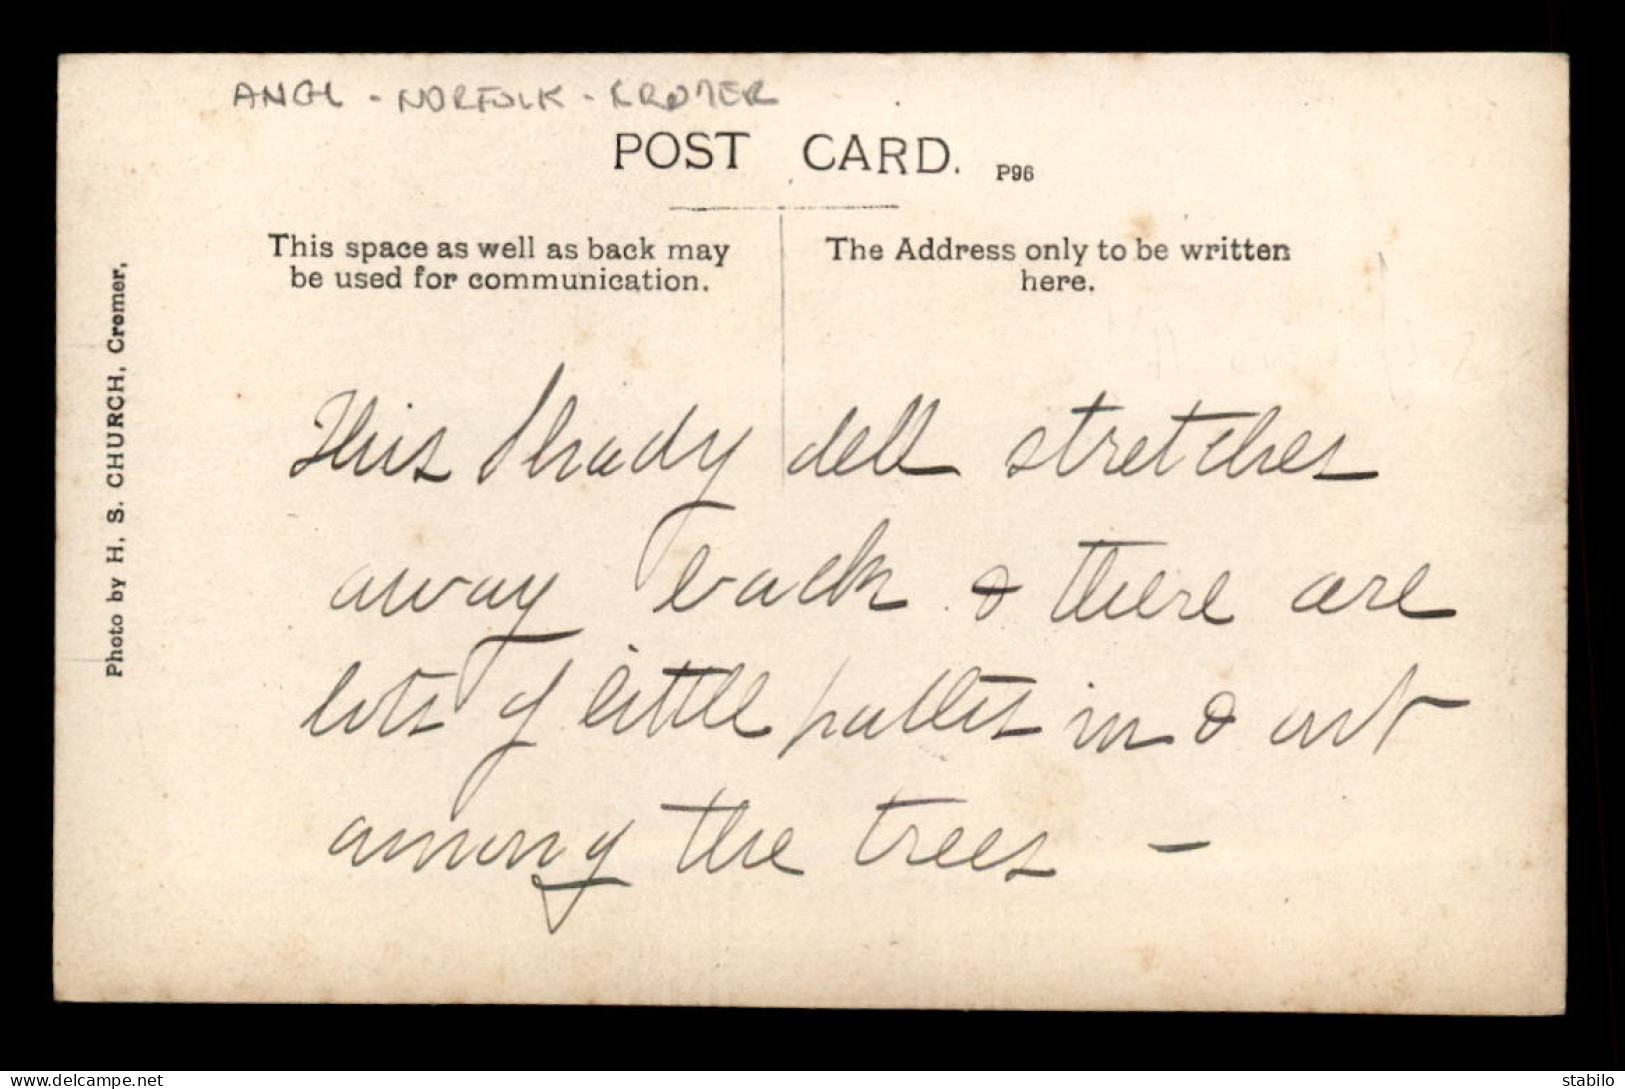 ANGL - NORFOLK - KROMER
POST CARD. P96
This space as well as back may
be used for communication.
The Address only to be written
here.
Photo by H. S. CHURCH, Cromer,
This shady dell stretches
away back & there are
lots of little paths in & out
among the trees -
delcampe.net
stabilo